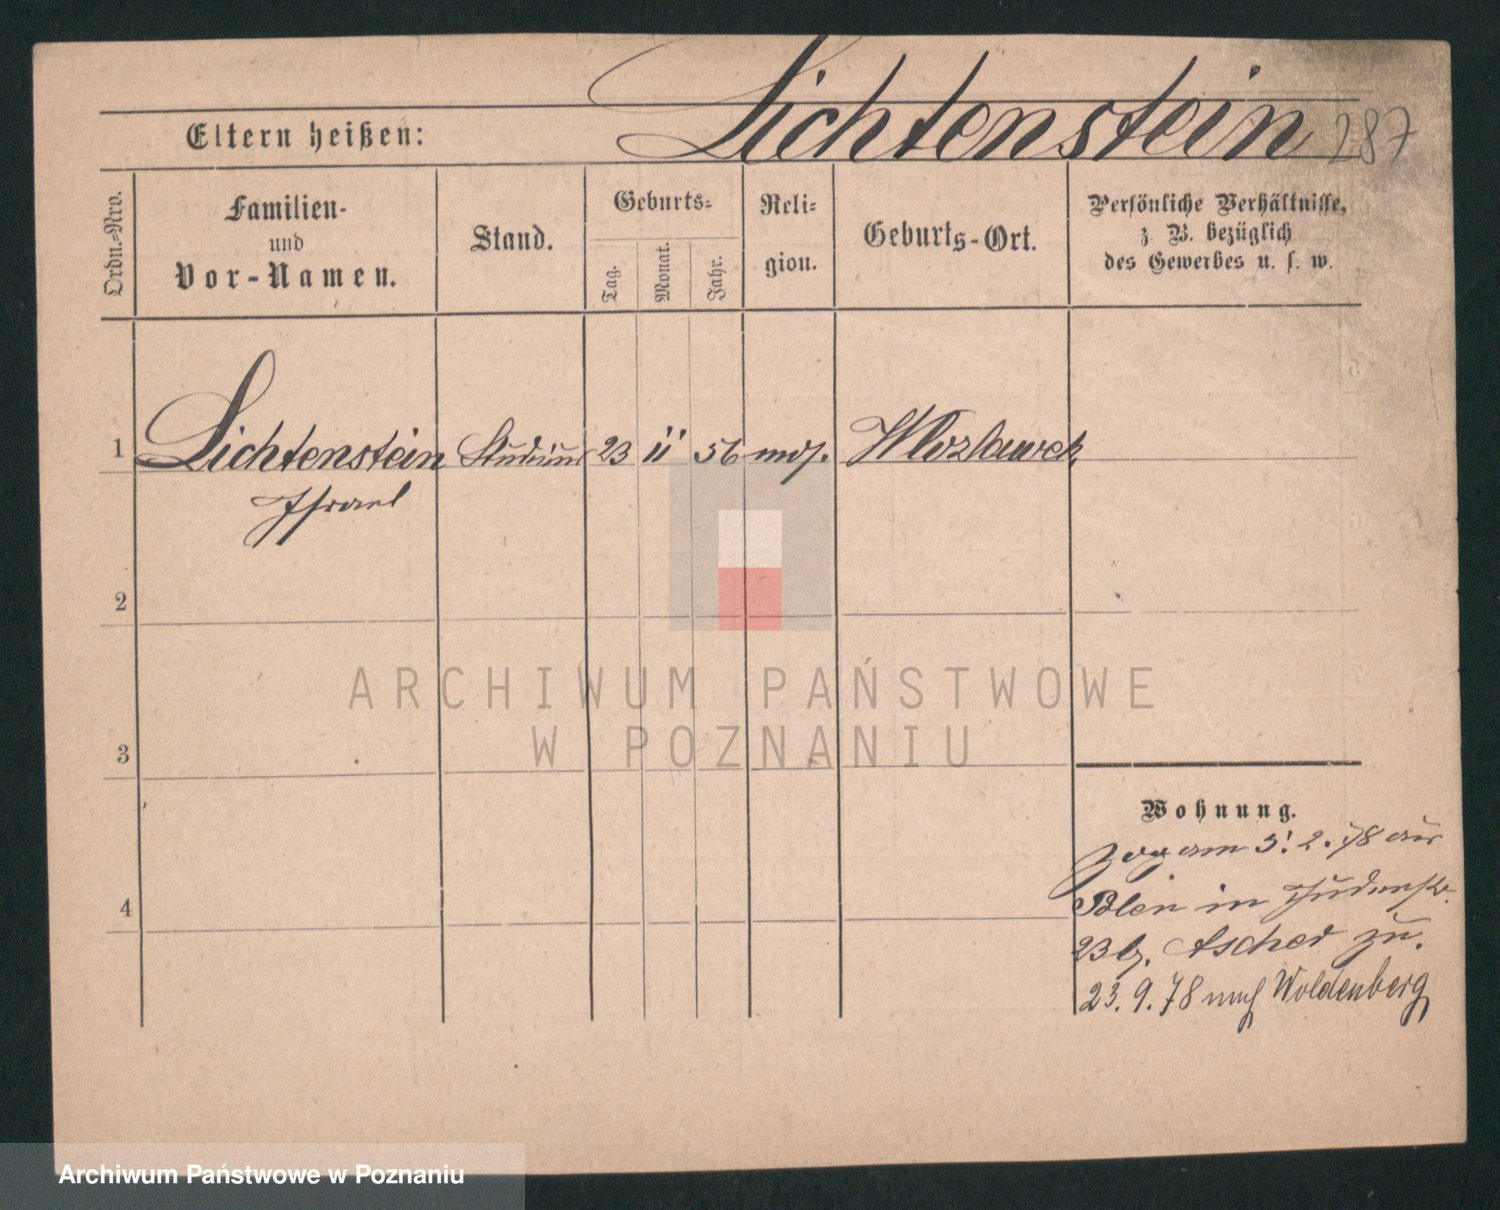 Lichtenstein 287
Eltern heißen:
Ordn.-Nro.
Familien-
und
Vor-Namen.
Stand.
Geburts-
Tag.
Monat.
Jahr.
Reli-
gion.
Geburts-Ort.
Persönliche Verhältnisse,
z. B. bezüglich
des Gewerbes u. s. w.
1 Lichtenstein 23 11 56 mos. Wlozlawek
Israel
2
3
4
Wohnung.
Zog am 5. 2. 78 aus
Polen in Judenstr.
23 b. Ascher zu.
23. 9. 78 nach Woldenberg
ARCHIWUM PAŃSTWOWE
W POZNANIU
Archiwum Państwowe w Poznaniu